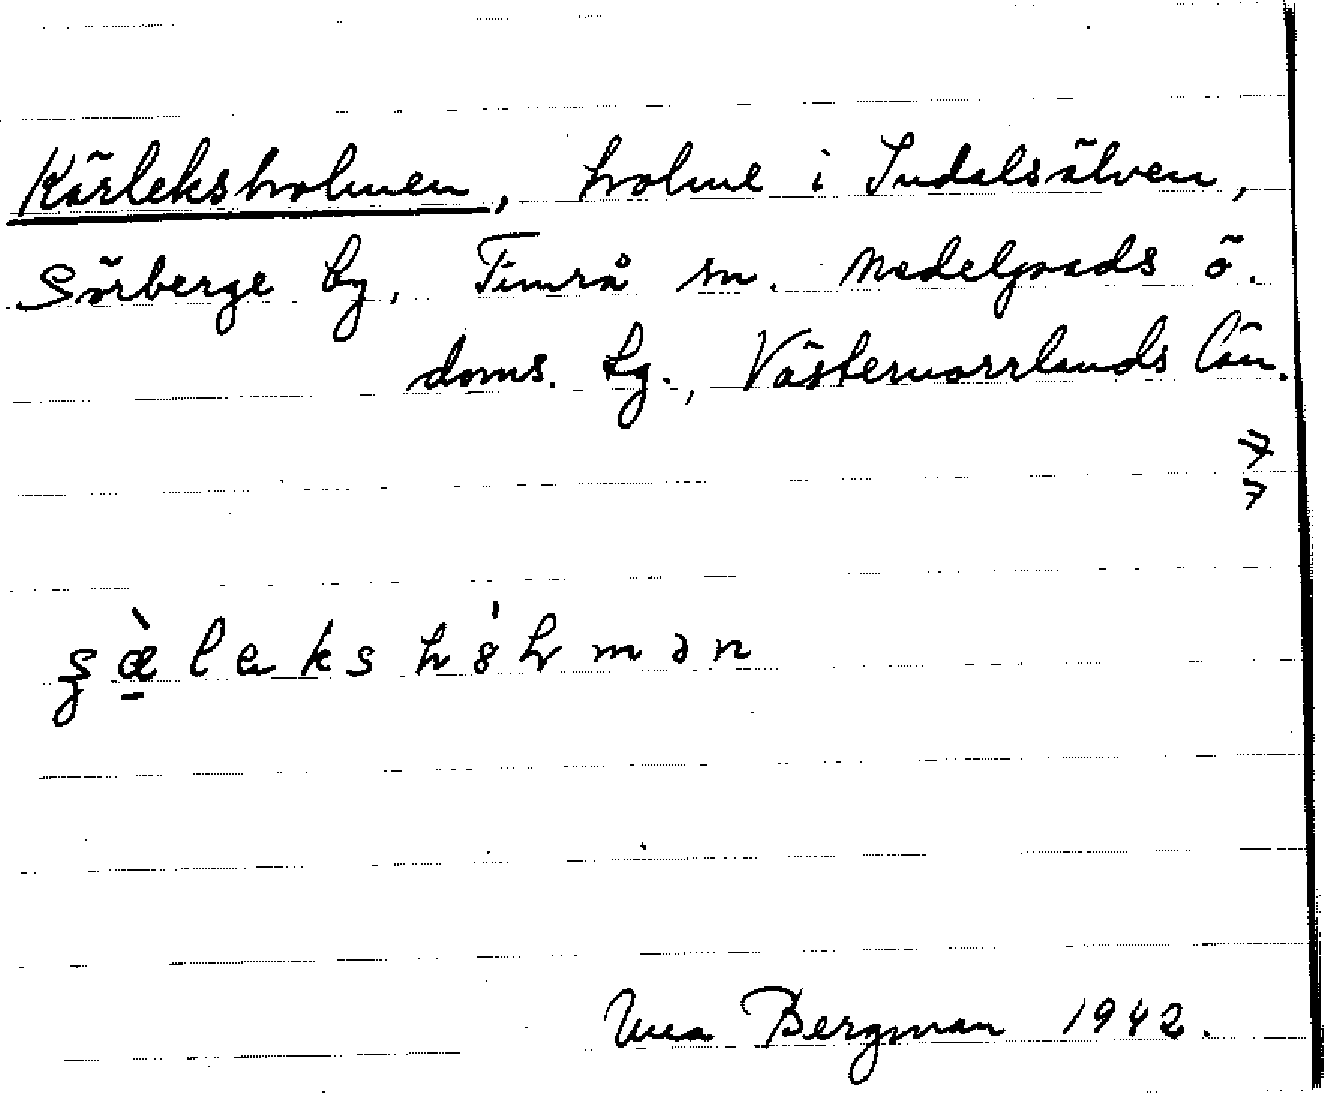 Kärleksholmen, holme i Indalsälven,
Sörberge by, Timrå sn. Medelpads ö.
doms. hg., Västernorrlands län.
7
7
Bergman 1942.